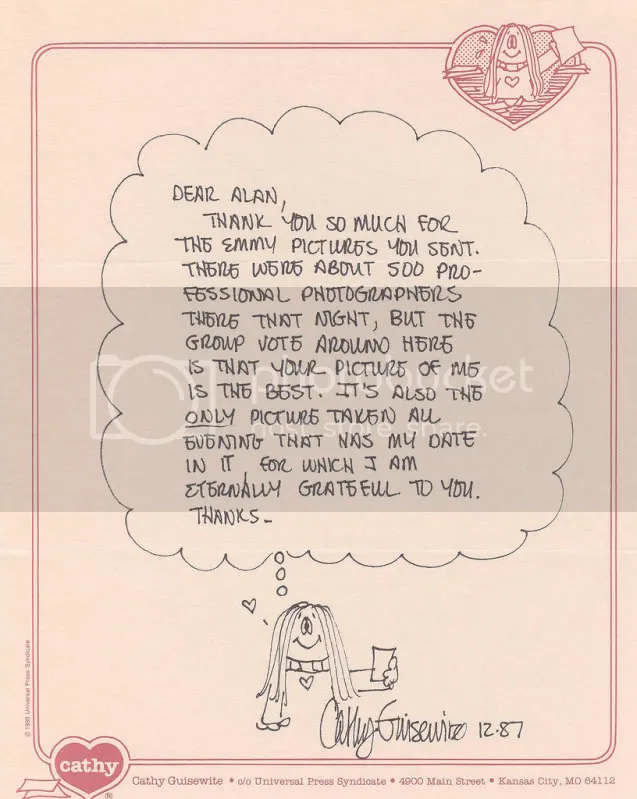 DEAR ALAN,
THANK YOU SO MUCH FOR
THE EMMY PICTURES YOU SENT.
THERE WERE ABOUT 500 PRO-
FESSIONAL PHOTOGRAPHERS
THERE THAT NIGHT, BUT THE
GROUP VOTE AROUND HERE
IS THAT YOUR PICTURE OF ME
IS THE BEST. IT'S ALSO THE
ONLY PICTURE TAKEN ALL
EVENING THAT HAS MY DATE
IN IT, FOR WHICH I AM
ETERNALLY GRATEFUL TO YOU.
THANKS-
Cathy Guisewite 12.87
© 1986 Universal Press Syndicate
cathy®
Cathy Guisewite • c/o Universal Press Syndicate • 4900 Main Street • Kansas City, MO 64112
photobucket
host. store. share.